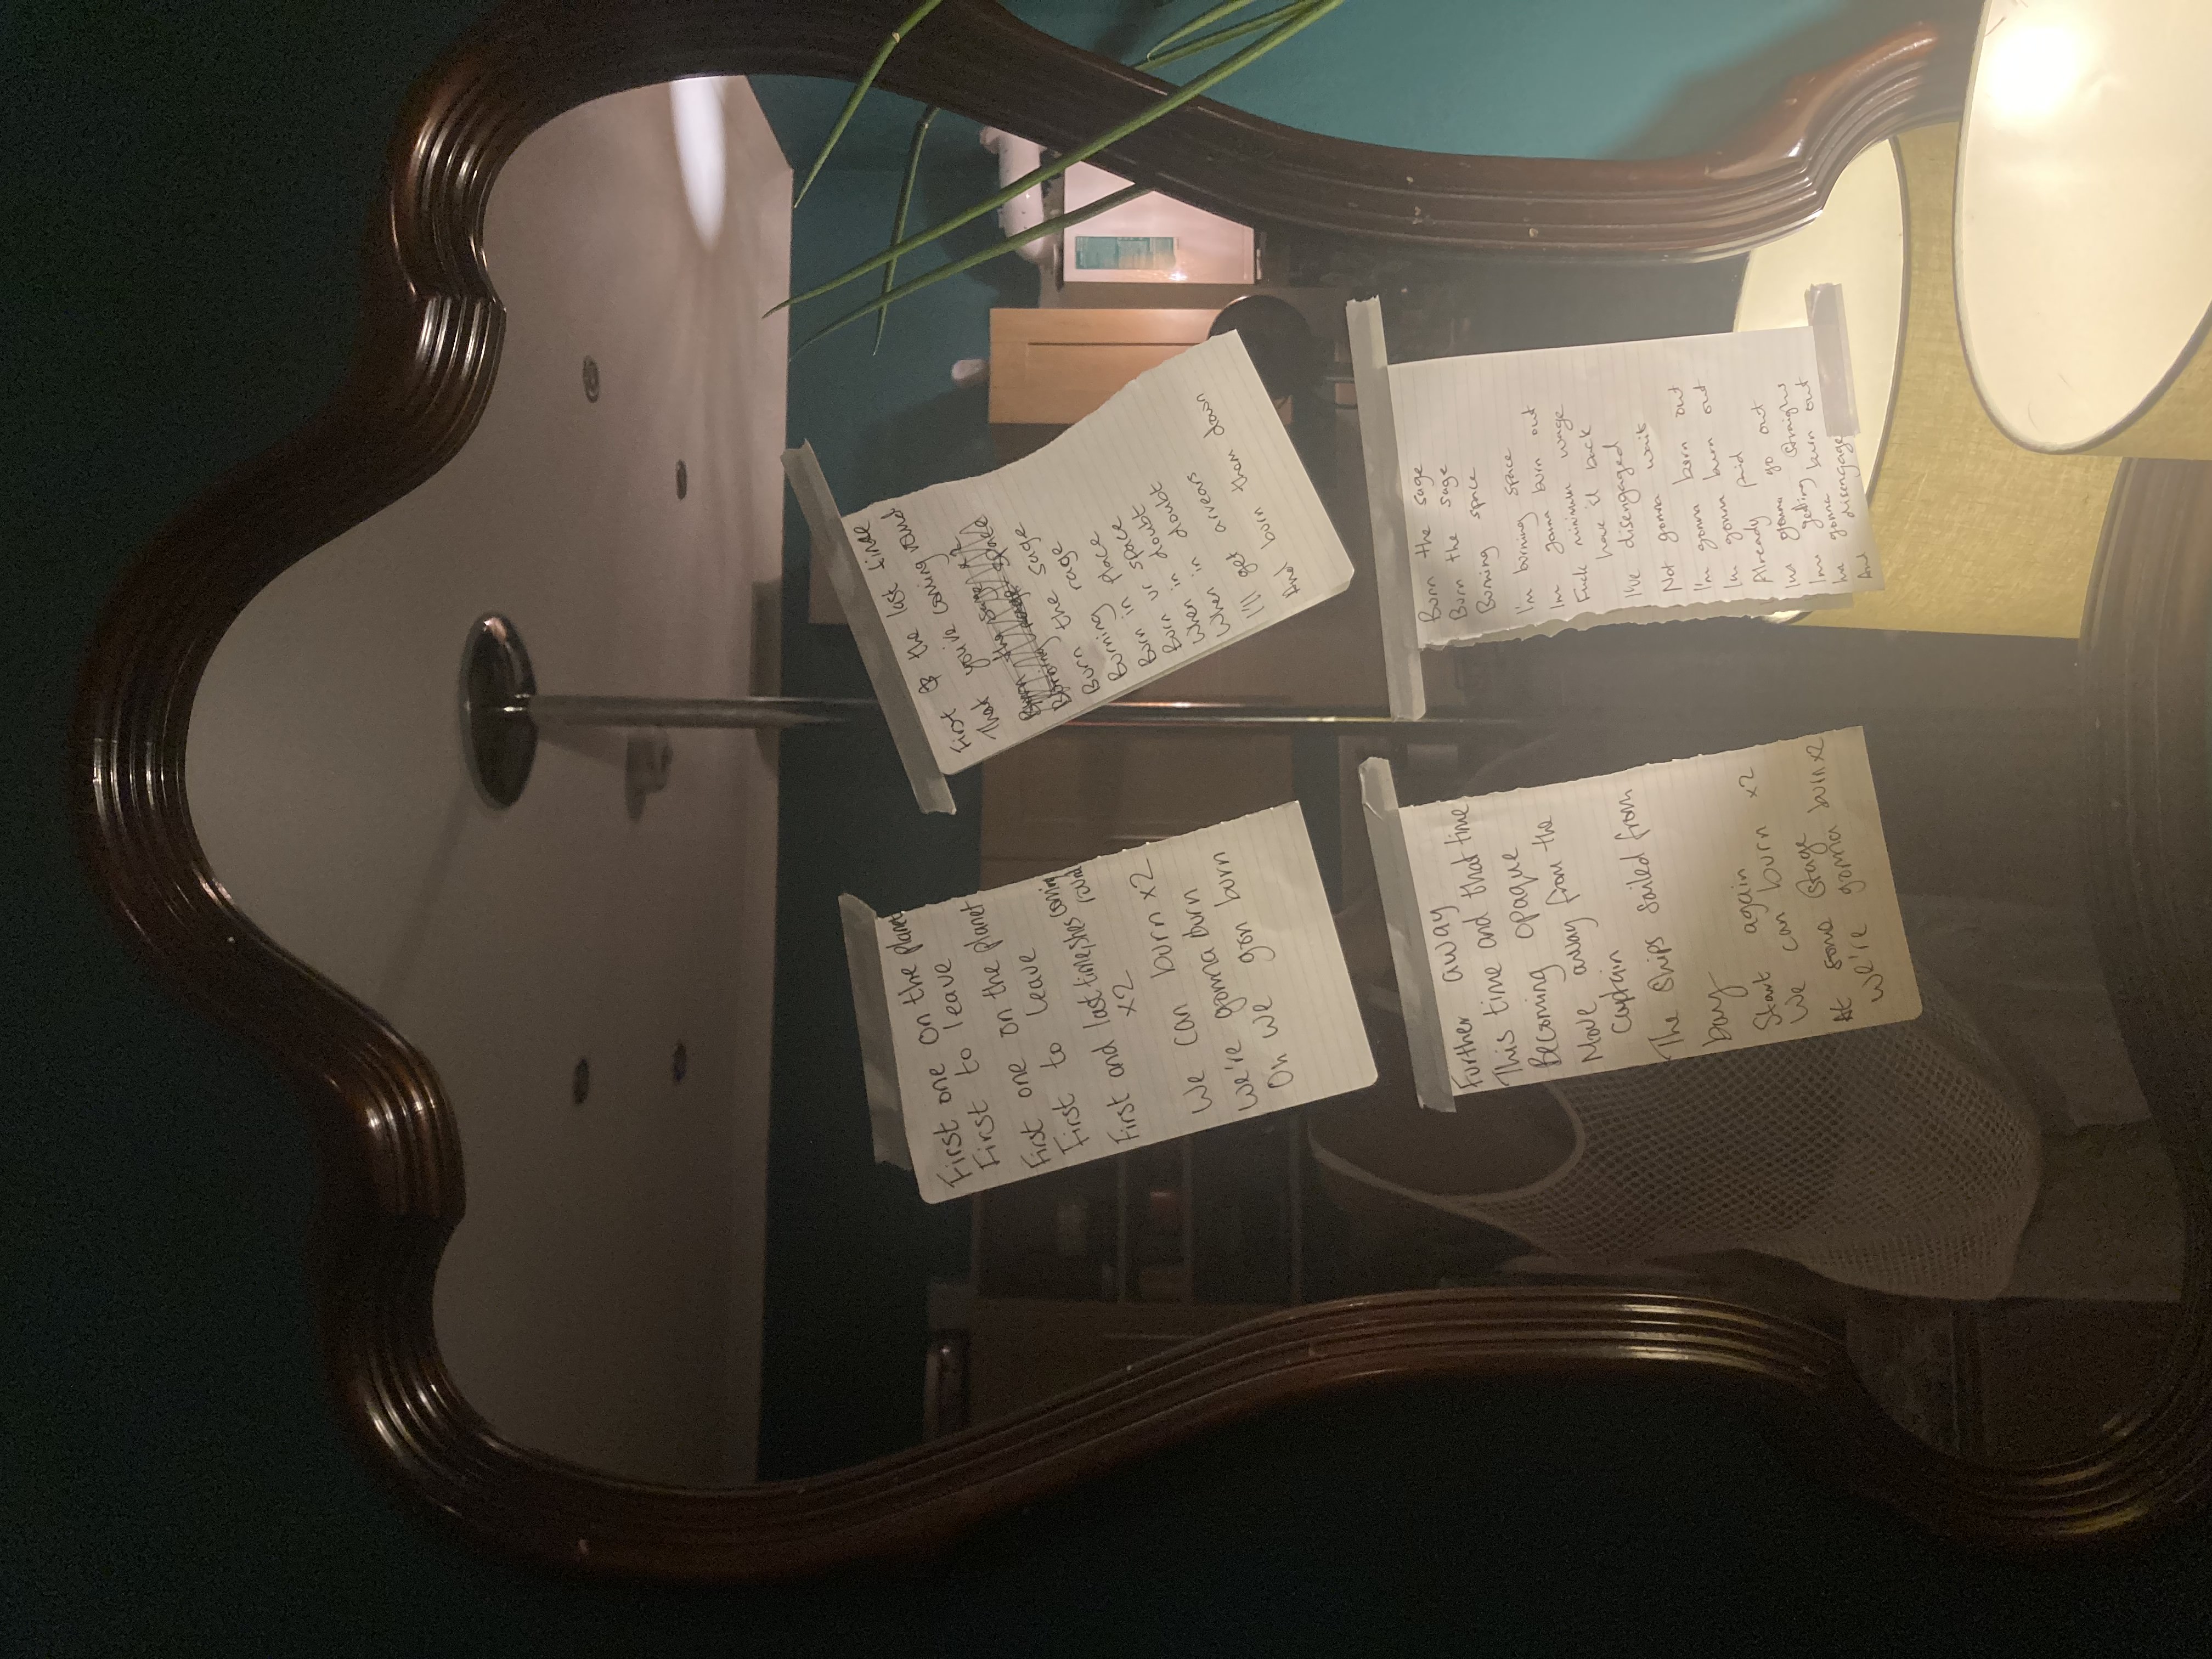 First one on the planet
First to leave
First one on the planet
First to leave
First and last time, shes coming
round
x2
We can burn x2
We're gonna burn
Oh we gon burn
First & the last time
That you're coming round
Burn the sage x2
Burning rage space
Burn the sage
Burning rage
Burn in place
Burn ur space
When in doubt
When in doubt
I'll get arrears
And burn them down
Further away
This time and that time
Becoming opaque
Move away from the
captain
The ships sailed from
bay
Start again
We can burn x2
At some stage
We're gonna burn x2
Burn the sage
Burn the sage
Burning space
I'm burning space
Im gonna burn out
Fuck minimum wage
have it back
I've disengaged
Not gonna wait
I'm gonna burn out
Im gonna burn out
Already paid
Im gonna go out
Im getting straight
Im gonna burn out
And disengage